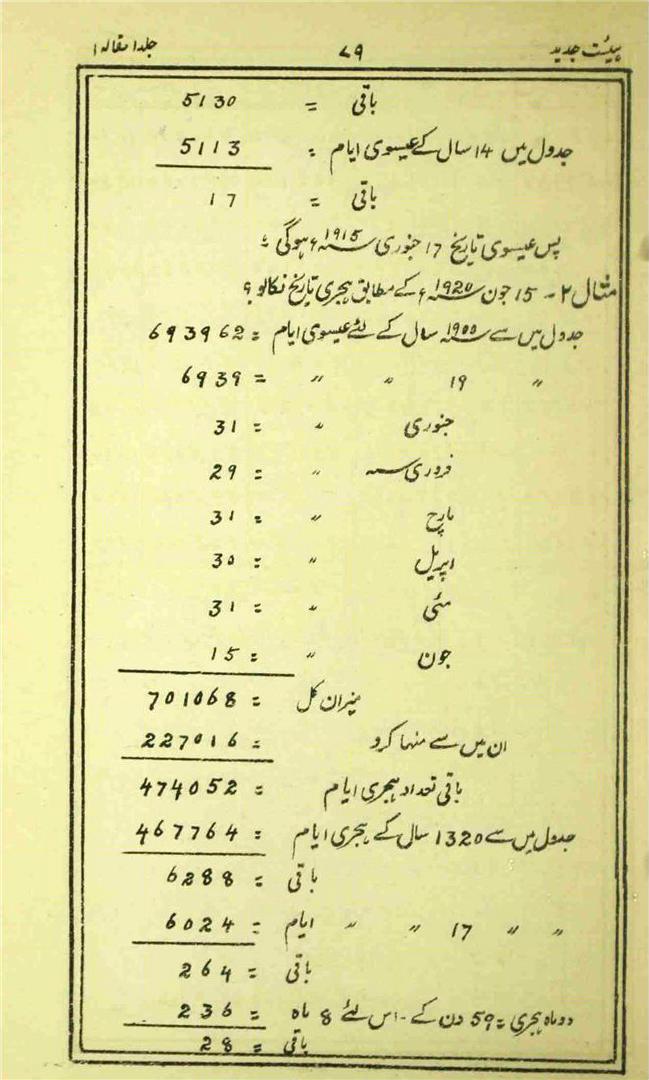 ہیئت جدید ۷۹ جلد ۱ مقالہ ۱
باقی = 5130
جدول میں 14 سال کے عیسوی ایام = 5113
باقی = 17
پس عیسوی تاریخ 17 جنوری 1915ء ہوگی ؛
مثال ۲۔ 15 جون 1920ء کے مطابق ہجری تاریخ نکالو ؟
جدول میں سے 1900 سال کے لئے عیسوی ایام = 693962
" 19 " " = 6939
جنوری " = 31
فروری " = 29
مارچ " = 31
اپریل " = 30
مئی " = 31
جون " = 15
میزان کل = 701068
ان میں سے منہا کرو = 227016
باقی تعداد ہجری ایام = 474052
جدول میں سے 1320 سال کے ہجری ایام = 467764
باقی = 6288
" " 17 " " ایام = 6024
باقی = 264
دو ماہ ہجری = 59 دن کے ۔ اس لئے 8 ماہ = 236
باقی = 28